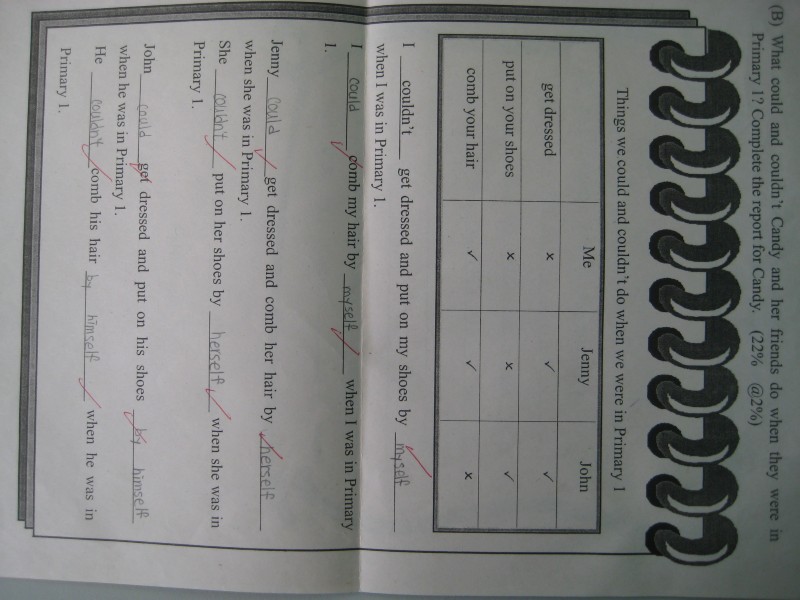 (B) What could and couldn't Candy and her friends do when they were in
Primary 1? Complete the report for Candy. (22% @2%)
Things we could and couldn't do when we were in Primary 1
Me Jenny John
get dressed x ✓ ✓
put on your shoes x x ✓
comb your hair ✓ ✓ x
I couldn't get dressed and put on my shoes by myself
when I was in Primary 1.
I could comb my hair by myself when I was in Primary
1.
Jenny could get dressed and comb her hair by herself
when she was in Primary 1.
She couldn't put on her shoes by herself when she was in
Primary 1.
John could get dressed and put on his shoes by himself
when he was in Primary 1.
He couldn't comb his hair by himself when he was in
Primary 1.